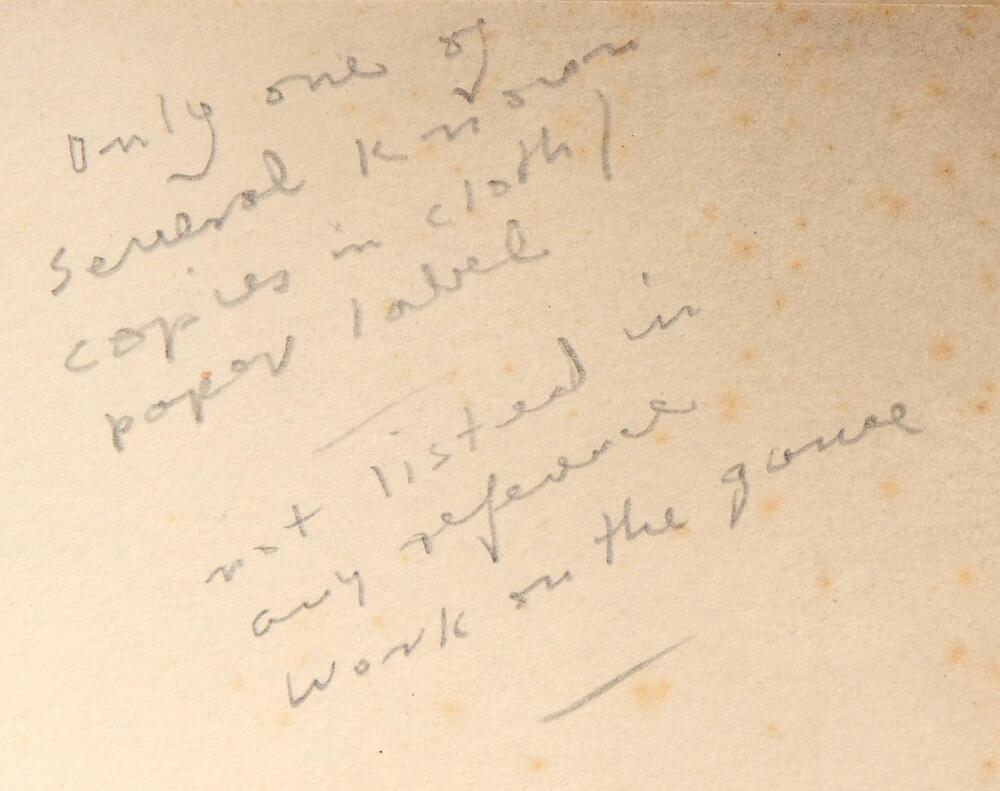 only one of
several known
copies in cloth/
paper label
not listed in
any reference
work on the game